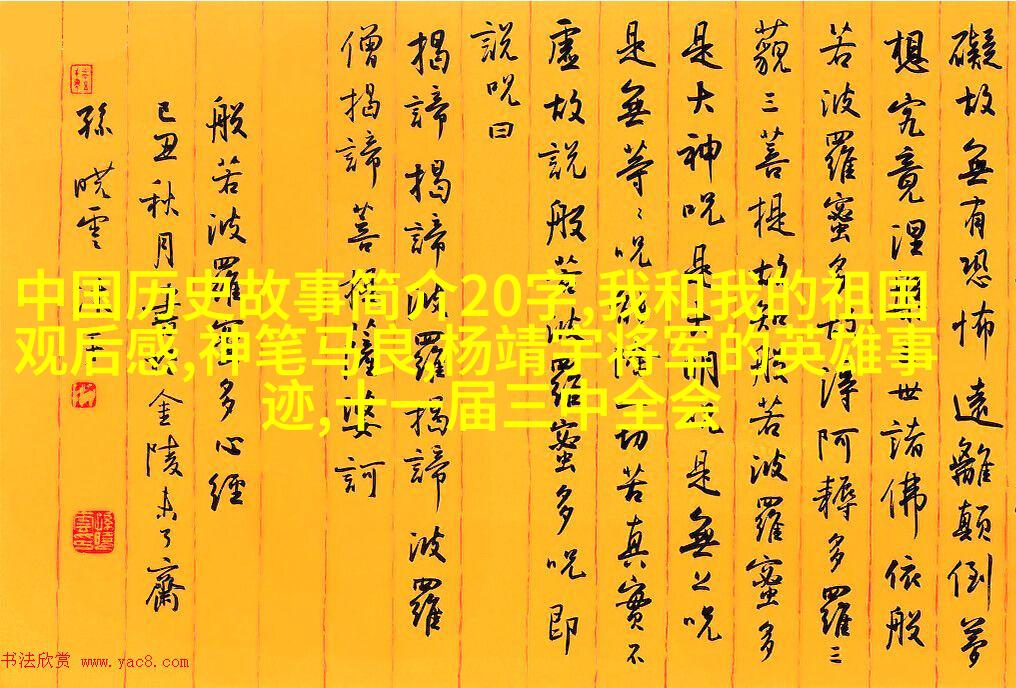 礙故無有恐怖遠離顛倒夢
想究竟涅槃三世諸佛依般
若波羅蜜多故得阿耨多羅三
藐三菩提故知般若波羅蜜多
是大神呪是大明呪是無上呪
是無等々呪能除一切苦真實不
虛故說般若波羅蜜多呪即
說呪曰
揭諦揭諦波羅揭諦波羅
僧揭諦菩提薩婆訶
般若波羅蜜多心經
己丑秋月金陵未了齋
孫曉雲
中国历史故事简介20字,我和我的祖国
观后感,神笔马良,杨靖宇将军的英雄事
迹,十一届三中全会
书法欣赏 www.yac8.com